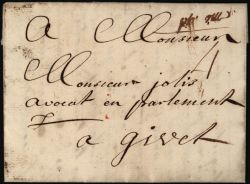 A Monsieur
Monsieur jolis
avocat en parlement
a givet